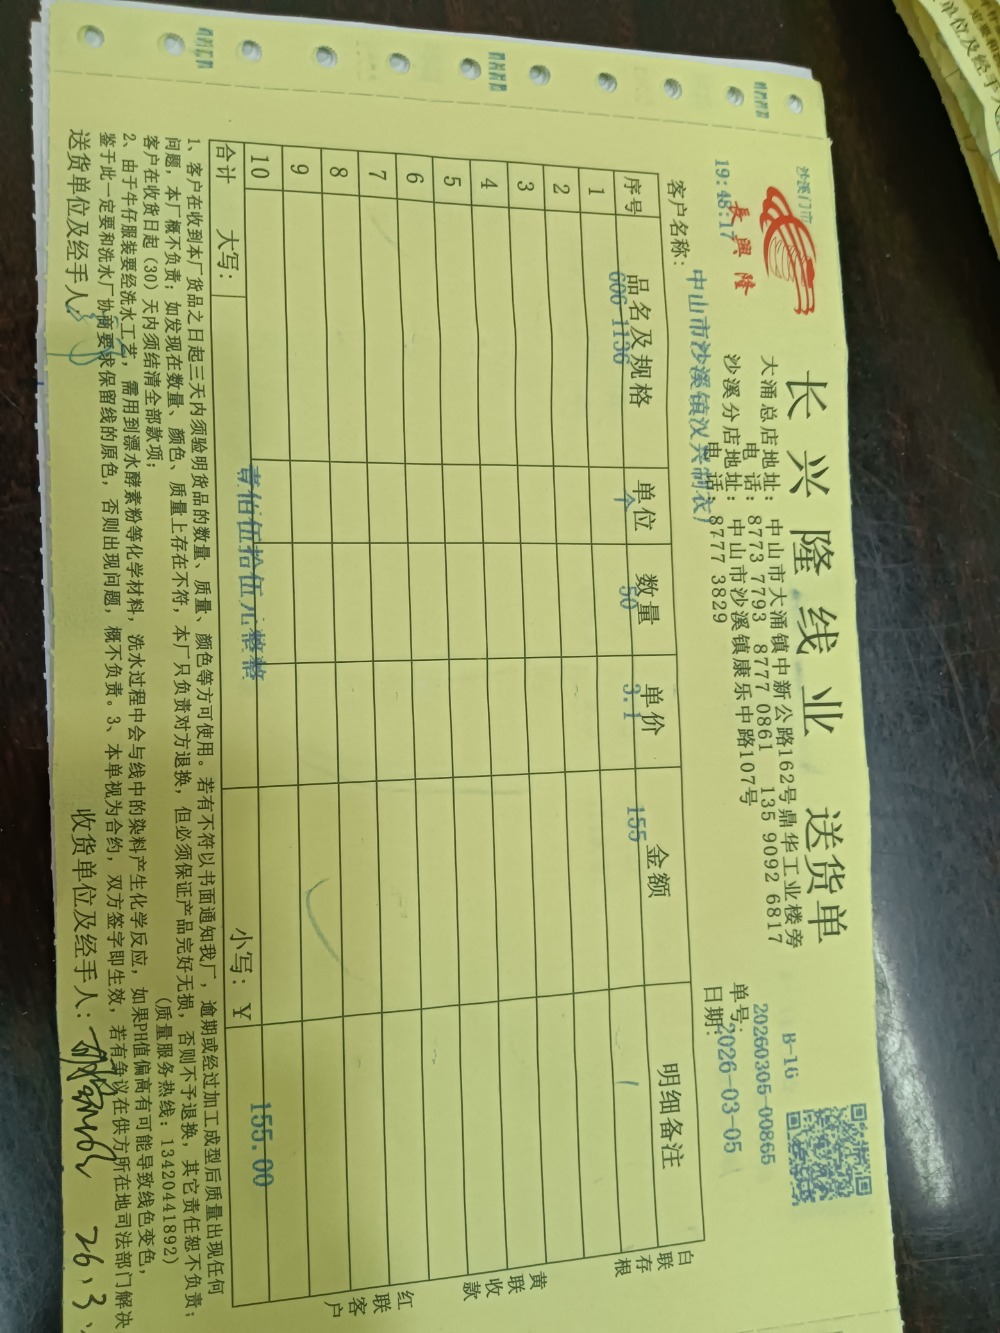 沙溪门市
19:48:17
長興隆
长兴隆线业 送货单
大涌总店地址：中山市大涌镇中新公路162号鼎华工业楼旁
电 话：8773 7793 8777 0861 135 9092 6817
沙溪分店地址：中山市沙溪镇康乐中路107号
电 话：8777 3829
B-16
单号：20260305-00865
日期：2026-03-05
客户名称：中山市沙溪镇汉兴制衣厂
序号 品名及规格 单位 数量 单价 金额 明细备注
1 606-1136 个 50 3.1 155
2
3
4
5
6
7
8
9
10
合计 大写：壹佰伍拾伍元整整 小写：¥ 155.00
白联存根
黄联收款
红联客户
1、客户在收到本厂货品之日起三天内须验明货品的数量、质量、颜色等方可使用。若有不符以书面通知我厂，逾期或经过加工成型后质量出现任何
问题，本厂概不负责；如发现在数量、颜色、质量上存在不符，本厂只负责对方退换，但必须保证产品完好无损，否则不予退换，其它责任恕不负责；
客户在收货日起（30）天内须结清全部款项； （质量服务热线：13420441892）
2、由于牛仔服装要经洗水工艺，需用到漂水酵素粉等化学材料，洗水过程中会与线中的染料产生化学反应，如果PH值偏高有可能导致线色变色，
鉴于此一定要和洗水厂协商要求保留线的原色，否则出现问题，概不负责。3、本单视为合约，双方签字即生效，若有争议在供方所在地司法部门解决
送货单位及经手人： 收货单位及经手人： 26、3、